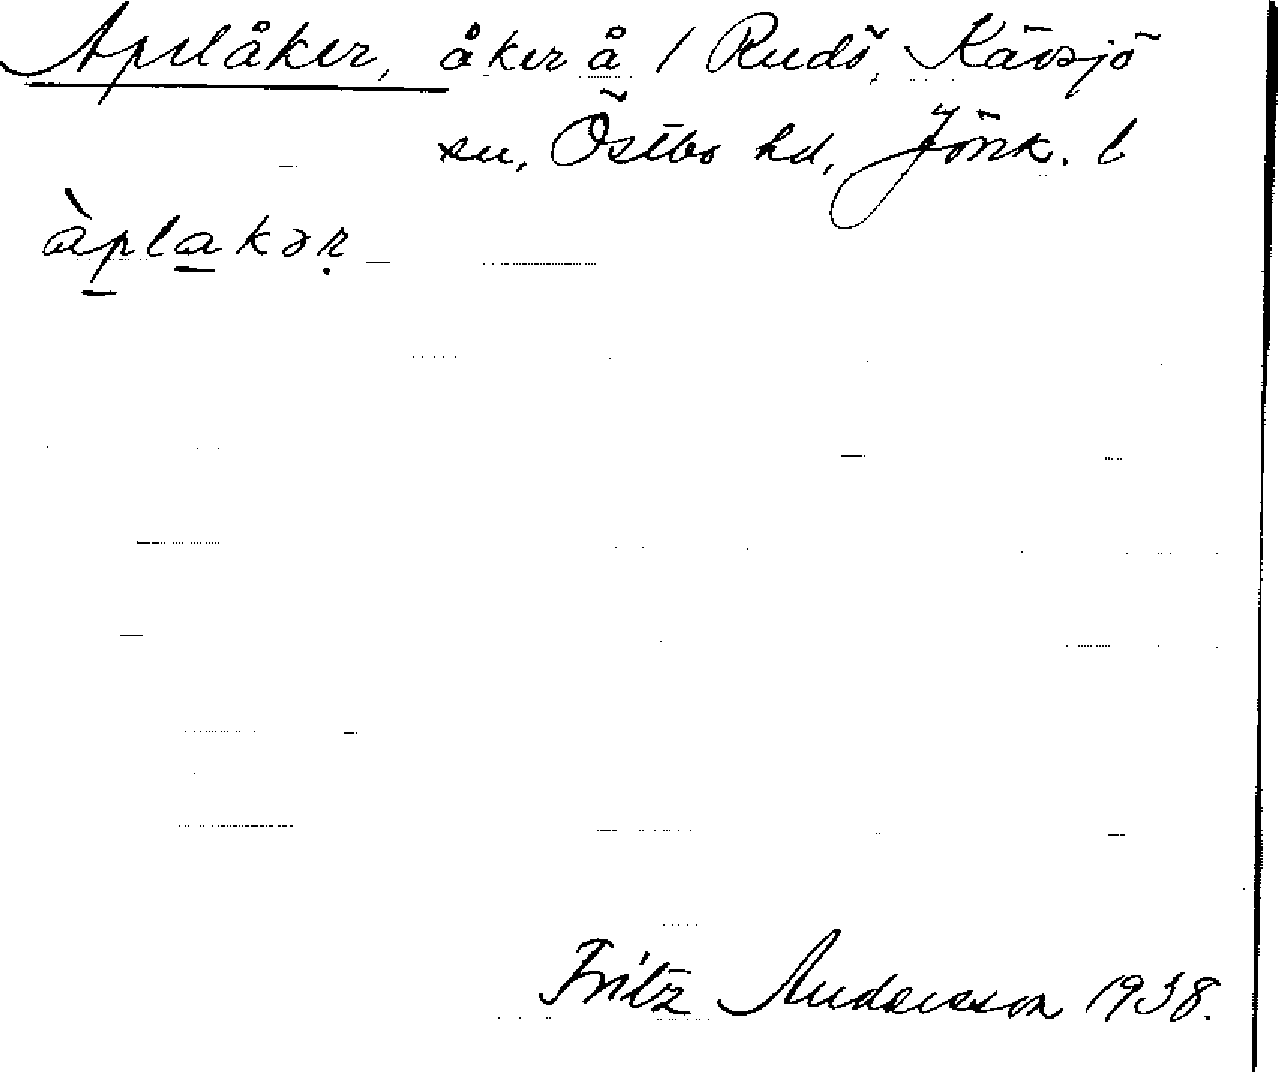 Apelåker, åker å 1 Rudö, Kävsjö
sn, Östbo hd, Jönk. l
àplakər
Fritz Andersson 1938.